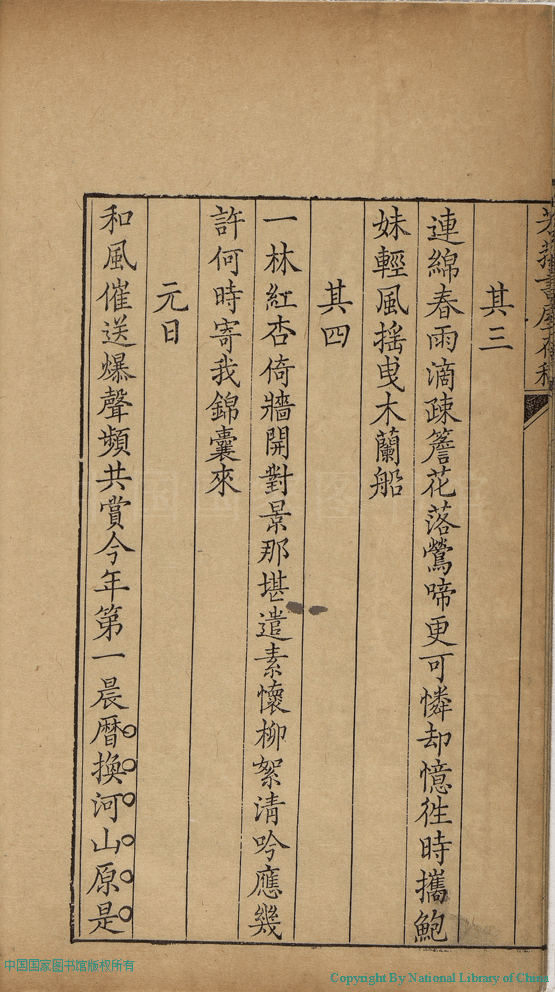 其三
連綿春雨滴疎簷花落鶯啼更可憐却憶徃時攜鮑
妹輕風摇曳木蘭船
其四
一林紅杏倚牆開對景那堪遣素懷柳絮清吟應幾
許何時寄我錦囊來
元日
和風催送爆聲頻共賞今年第一晨暦換河山原是
中国国家图书馆版权所有
Copyright By National Library of China